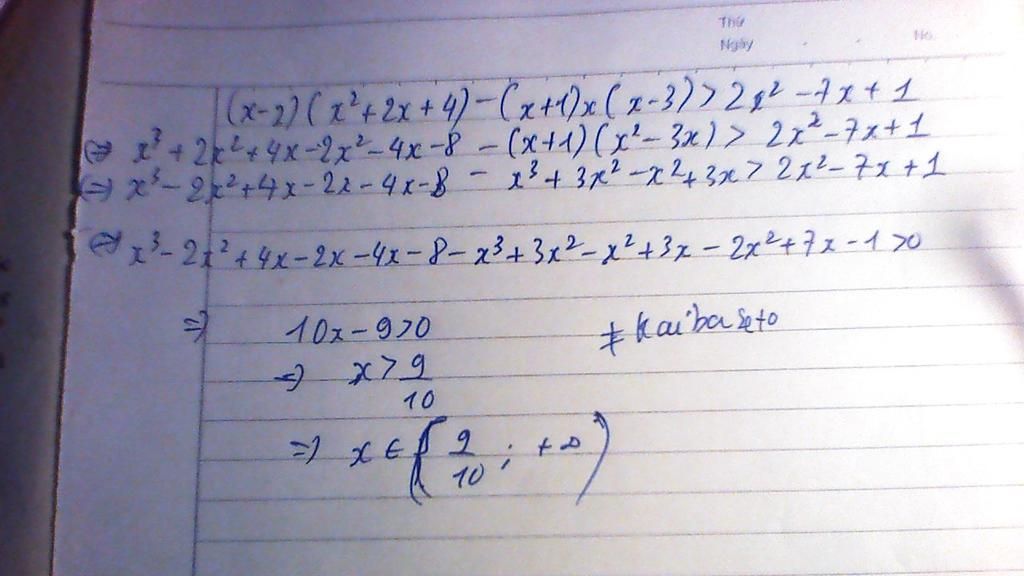 Thứ
Ngày
No.
(x-2)(x²+2x+4)-(x+1)x(x-3)>2x²-7x+1
⇔ x³+2x²+4x-2x²-4x-8-(x+1)(x²-3x)>2x²-7x+1
⇔ x³-2x²+4x-2x-4x-8-x³+3x²-x²+3x>2x²-7x+1
⇔ x³-2x²+4x-2x-4x-8-x³+3x²-x²+3x-2x²+7x-1>0
⇒ 10x-9>0
≠ Kaiba Seto
⇒ x>9/10
⇒ x∈(9/10; +∞)